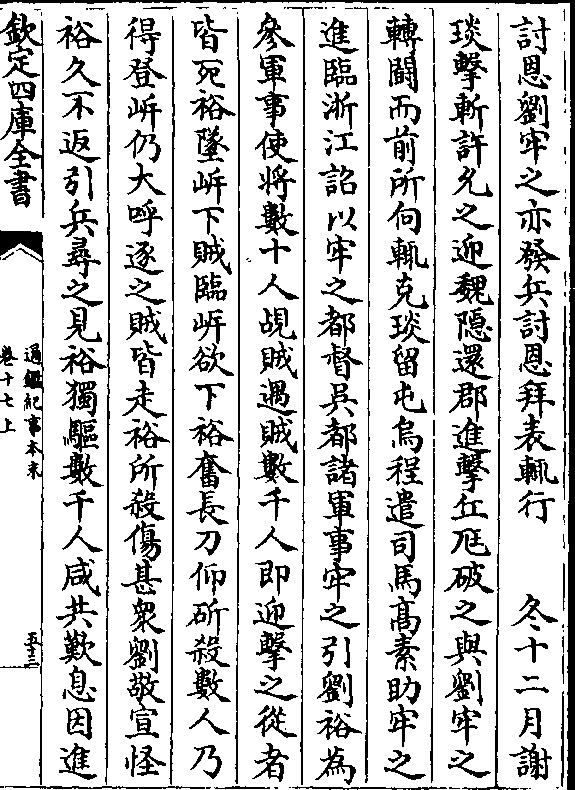 討恩劉牢之亦發兵討恩拜表輒行　　冬十二月謝
琰擊斬許允之迎魏隱還郡進擊丘尫破之與劉牢之
轉鬬而前所向輒克琰留屯烏程遣司馬高素助牢之
進臨浙江詔以牢之都督吳都諸軍事牢之引劉裕為
參軍事使將數十人覘賊遇賊數千人即迎擊之從者
皆死裕墜岍下賊臨岍欲下裕奮長刀仰斫殺數人乃
得登岍仍大呼逐之賊皆走裕所殺傷甚衆劉敬宣怪
裕久不返引兵尋之見裕獨驅數千人咸共歎息因進
欽定四庫全書
通鑑紀事本末
卷十七上
五十三